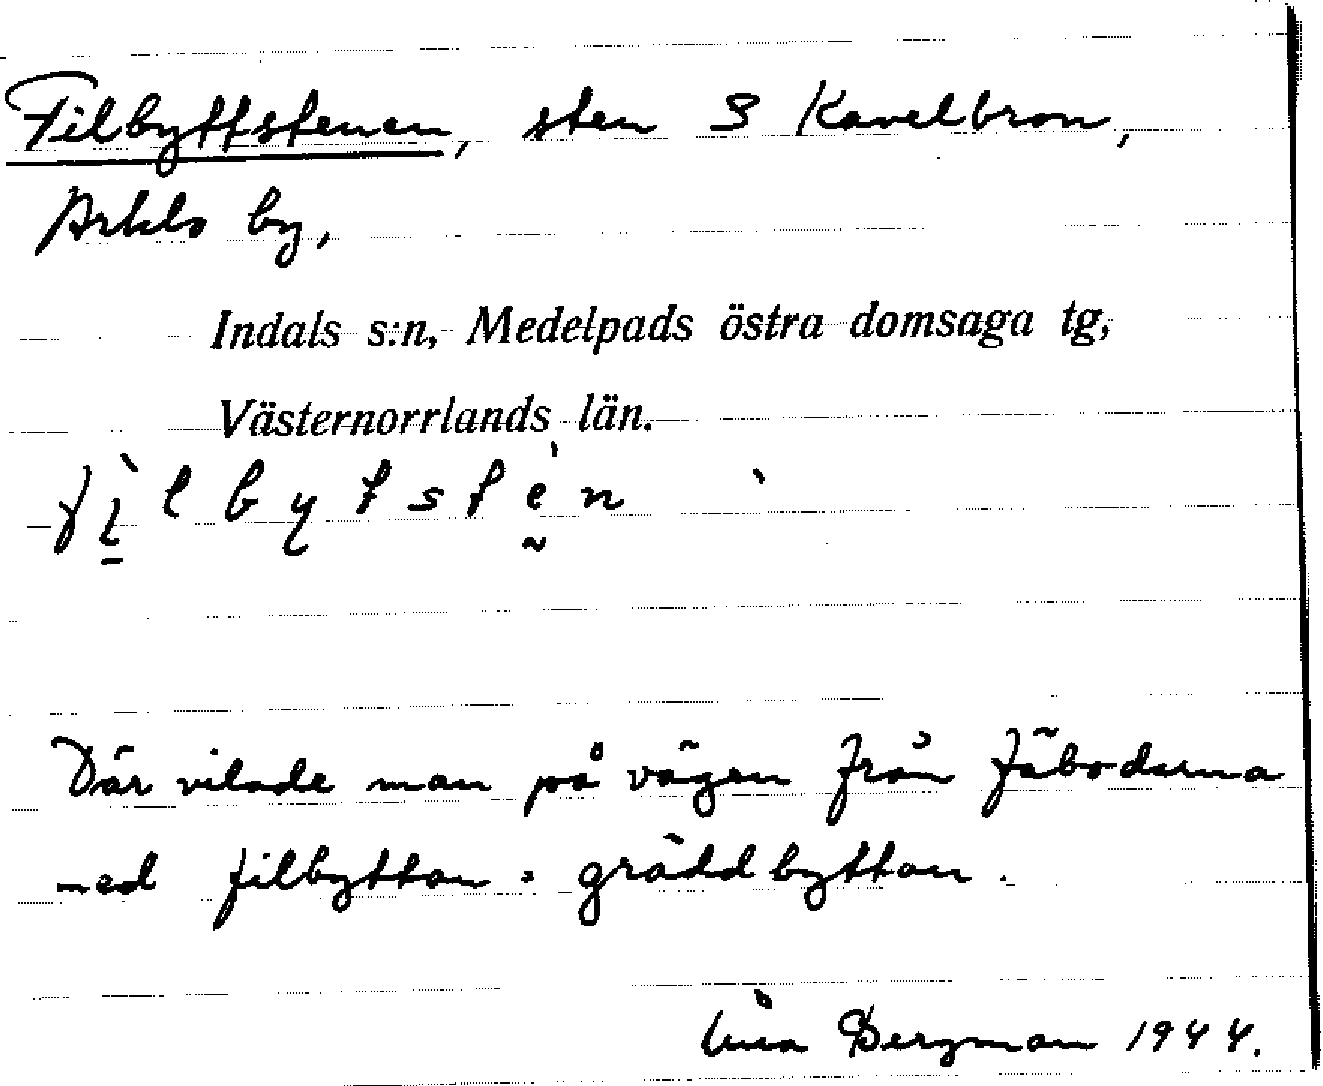 Filbyttstenen, sten S Kavelbron,
by,
Indals s:n, Medelpads östra domsaga tg,
Västernorrlands län.
fìlbytstèn
Där vilade man på vägen från fäboderna
med filbyttan = gräddbyttan.
Bergman 1944.